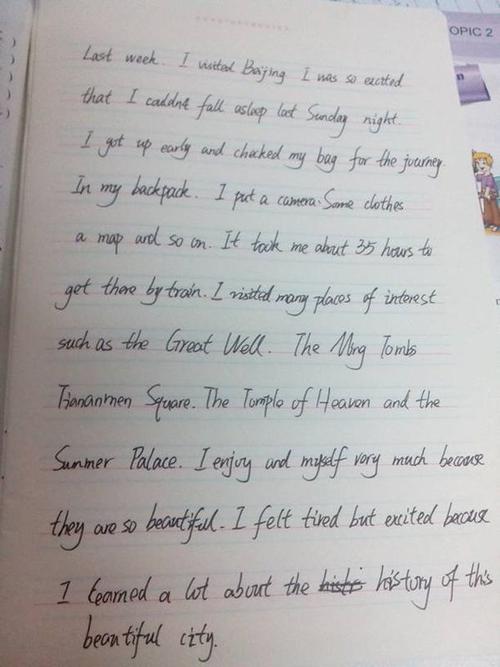 OPIC 2
Last week. I visited Beijing I was so excited
that I couldn't fall asleep last Sunday night.
I got up early and checked my bag for the journey.
In my backpack. I put a camera. Some clothes
a map and so on. It took me about 35 hours to
get there by train. I visited many places of interest
such as the Great Well. The Ming Tombs
Tiananmen Square. The Temple of Heaven and the
Summer Palace. I enjoy and myself very much because
they are so beautiful. I felt tired but excited because
I learned a lot about the histri history of this
beautiful city.